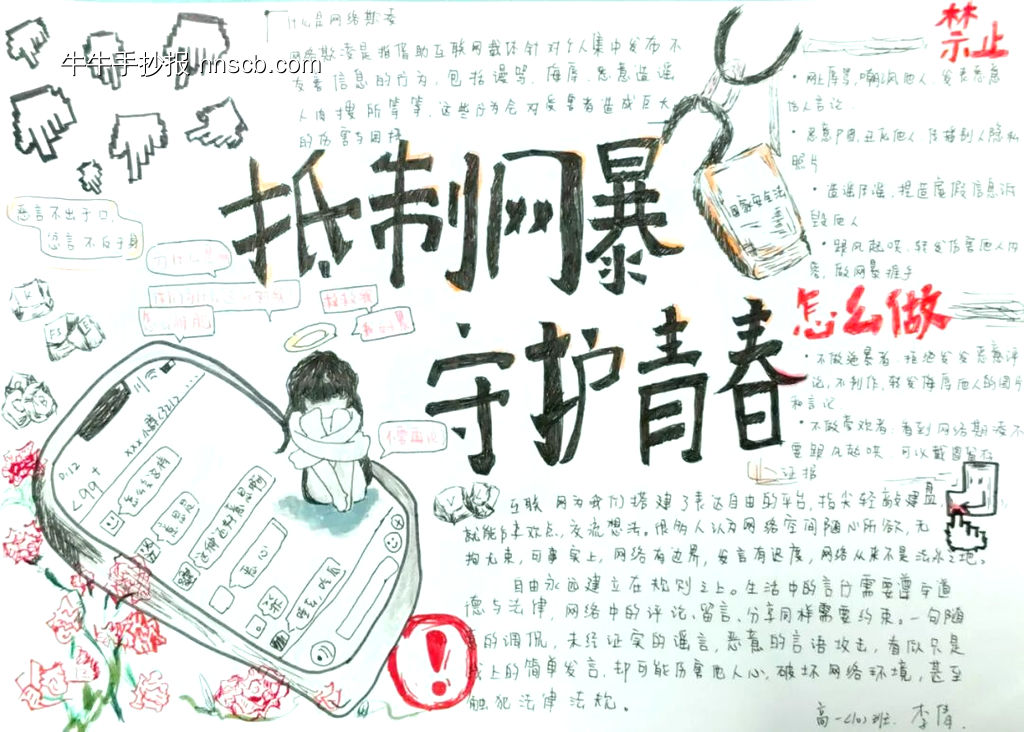 牛牛手抄报 hnscb.com
什么是网络欺凌
网络欺凌是指借助互联网载体针对个人集中发布不
友善信息的行为,包括谩骂、侮辱、恶意造谣
人肉搜所等等,这些行为会对受害者造成巨大
的伤害与困扰
抵制网暴
守护青春
恶言不出于口,
忿言不反于身
国家安全法
禁止
• 网上辱骂,嘲讽他人,发表恶意
伤人言论
• 恶意P图,丑化他人 传播别人隐私
照片
• 造谣 捏造虚假信息诋
毁他人
• 跟风起哄,转发伤害他人内
容,做网暴推手
怎么做
• 不做施暴者:拒绝发发恶意评
论,不制作、转发侮辱他人的图片
和言论
• 不做旁观者:看到网络期凌不
要跟风起哄,可以截图留存
证据
不要再说
0:12
<99+
xxx小群(3212
怎么会这样
真恶心
互联网为我们搭建了表达自由的平台,指尖轻敲键盘,
就能 交流想法。很多人认为网络空间随心所欲,无
拘无束,可事实上,网络有边界,发言有 度,网络从来不是法外之地。
自由永远建立在规则之上。生活中的言行需要遵守道
德与法律,网络中的评论、留言、分享同样需要约束。一句随
意的调侃,未经证实的谣言,恶意的言语攻击,看似只是
线上的简单发言,却可能伤害他人心,破坏网络环境,甚至
触犯法律法规。
高一(10)班 李倩